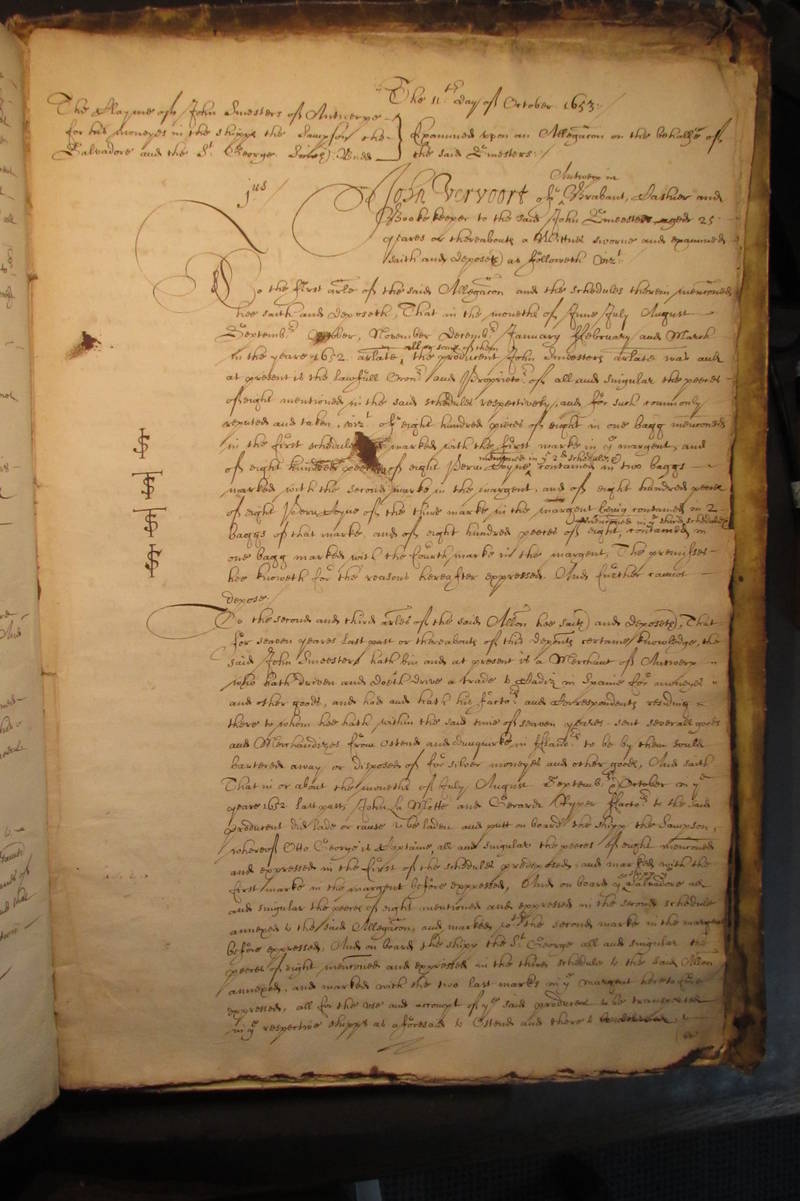 The 11th day of October 1653:/
The Clayme of John Smeesters of Antwerpe
for his moneyes in the shipps the Sampson the
Salvadore and the St. George
Examined upon an Allegacon on the behalfe of
the said Smeesters:/
jus/
Antwerp in
John Vervoort of Brabant, Cashier and
Bookekeeper to the said John Smeesters aged 25
yeares or thereabouts a Wittnes sworne and examined
saith and deposeth as followeth vizt
To the first arle of the said Allegacon and the schedules therein menconed
hee saith and deposeth, That in the moneths of June July August
Septembr October, November Decembr January ffebruary and March
all or some of them
in the yeare 1652 arlate, the producent John Smeesters arlate was and
at present is the lawfull Owner and Proprietor of all and singular the peeces
of eight mentioned in the said schedules respectively, and for such commonly
reputed and taken, vizt of eight hundred pieces of eight in one bagg menconed
in the first schedule marked with the first marke in ye margent, and
mentioned in ye 2d schedule
of eight hundred peeces of eight Peru Coyne contained in two baggs
marked with the second marke in the margent, and of eight hundred peeces
of eight Peru Coyne of the third marke in the margent being contained in 2
mentioned in ye third schedule
baggs of that marke, and of eight hundred peeces of eight, contained in
one bagg marked with the fourth marke in the margent, The premisses
hee knoweth for the reasons hereafter expressed. And further cannot
depose.
To the second and third arles of the said Allon hee saith and deposeth, That
for seaven yeares last past or thereabouts of this deponts certaine knowledge, the
said John Smeesters hath bin and at present is a Merchant of Antwerp
who hath driven and doeth drive a trade to Cadiz in Spaine for moneyes
and other goods, and had and hath his factors and Correspondents resideing
there to whom hee hath within the said time of seaven yeares sent severall goods
and Merchandizes from Ostend and Dunquirke in Flandrs to be by them sould
bartered away or disposed of for silver moneyes and other goods, And saith
That in or about the moneths of July August Septemb. & October in ye
yeare 1652 last past, John La Motte and Gerard factors to the said
producent did lade or cause to be laden and putt on board the shipp the Sampson,
whereof Otto George is Captaine, all and singular the peeces of eight menconed
and expressed in the first of the schedules predeposed, and marked with the
first marke in the margent before expressed, And on board ye Salvadore all
and singular the peeces of eight mentioned and expressed in the second schedule
annexed to the said Allegacon, and marked wth the second marke in the margent
before expressed, And on board the shipp the St. George all and singular the
peeces of eight menconed and expressed in the third schedule to the said Allon
annexed, and marked with the two last marks in ye margent heretofore
expressed, all for the use and accompt of ye said producent to be transported
in ye respective shipps as aforesaid to Ostend and there to